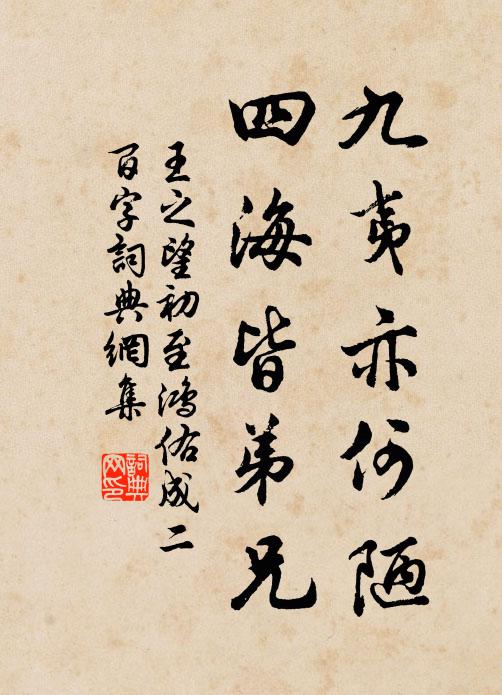 九夷亦何陋
四海皆弟兄
王之望初至鴻佑成二
百字詞典網集
詞典網印